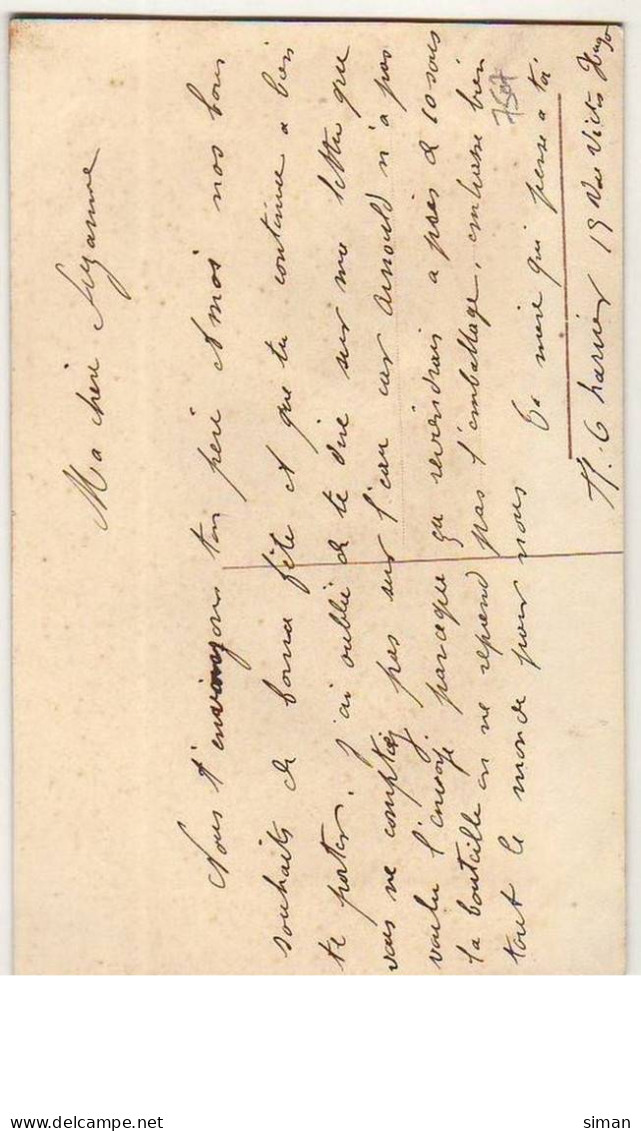 Ma chère Suzanne
Nous t'envoyons ton père et moi nos bons
souhaits de bonne fête et que tu continue a bien
te porter. j'ai oublié de te dire sur ma lettre que
vous ne comptiez pas sur l'eau car Arnould n'a pas
voulu l'envoyé parceque ça reviendrais a près de 10 sous
la bouteille on ne reprend pas l'emballage, embrasse bien
tout le monde pour nous
Ta mère qui pense a toi
H. Charrier 19 Victor Hugo
siman